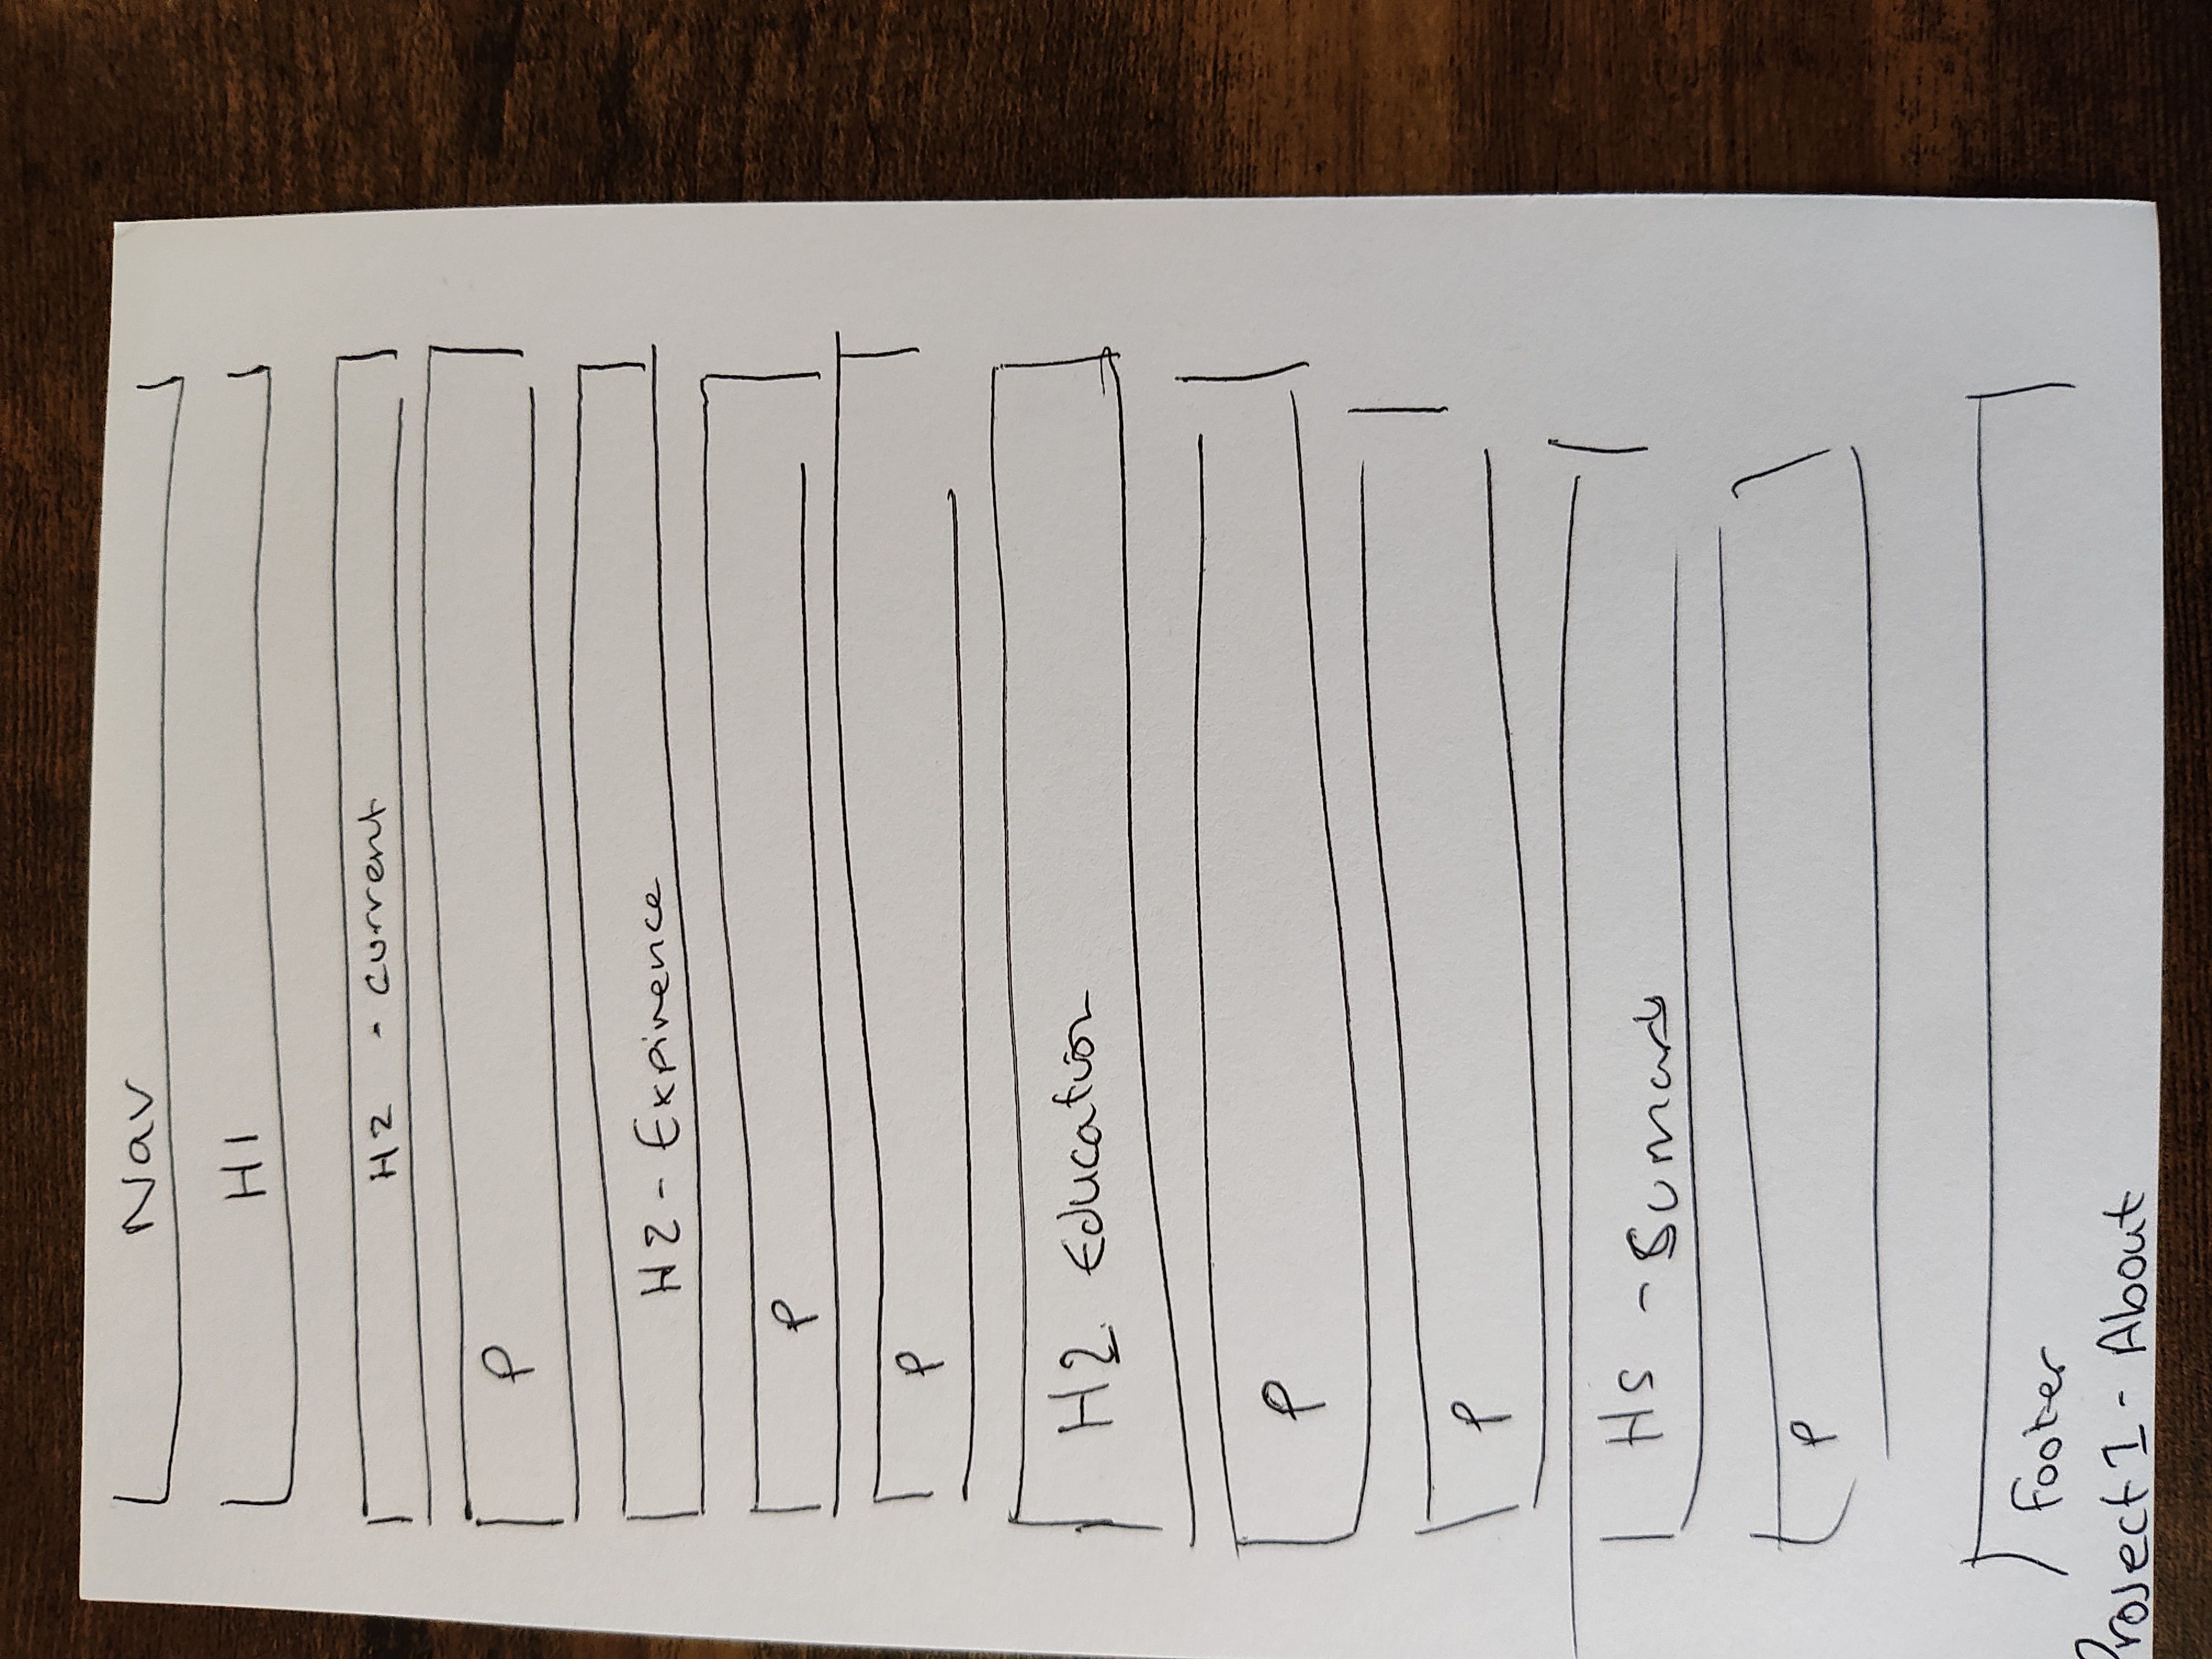 Nav
H1
H2 - current
P
H2 - Expirence
P
P
H2 Education
P
P
Hs - Sumary
P
footer
Project 1 - About